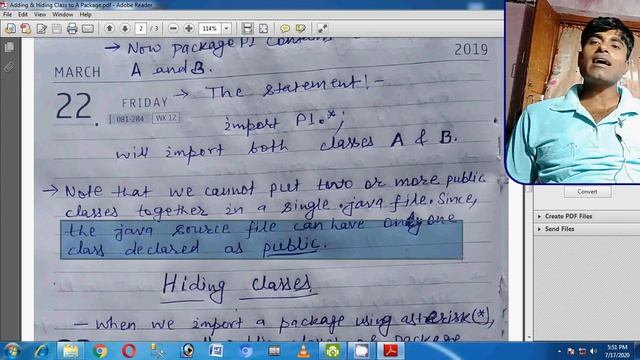 Adding & Hiding Class to A Package.pdf - Adobe Reader
File Edit View Window Help
2 / 3
114%
→ Now package P1 contains
A and B.
2019
MARCH
22.
FRIDAY
081-284
WK 12
→ The statement:-
import P1.*;
will import both classes A & B.
→ Note that we cannot put two or more public
classes together in a single .java file. Since,
the java source file can have only one
class declared as public.
Hiding classes
- When we import a package using asterisk(*),
Convert
Create PDF Files
Send Files
5:51 PM
7/17/2020